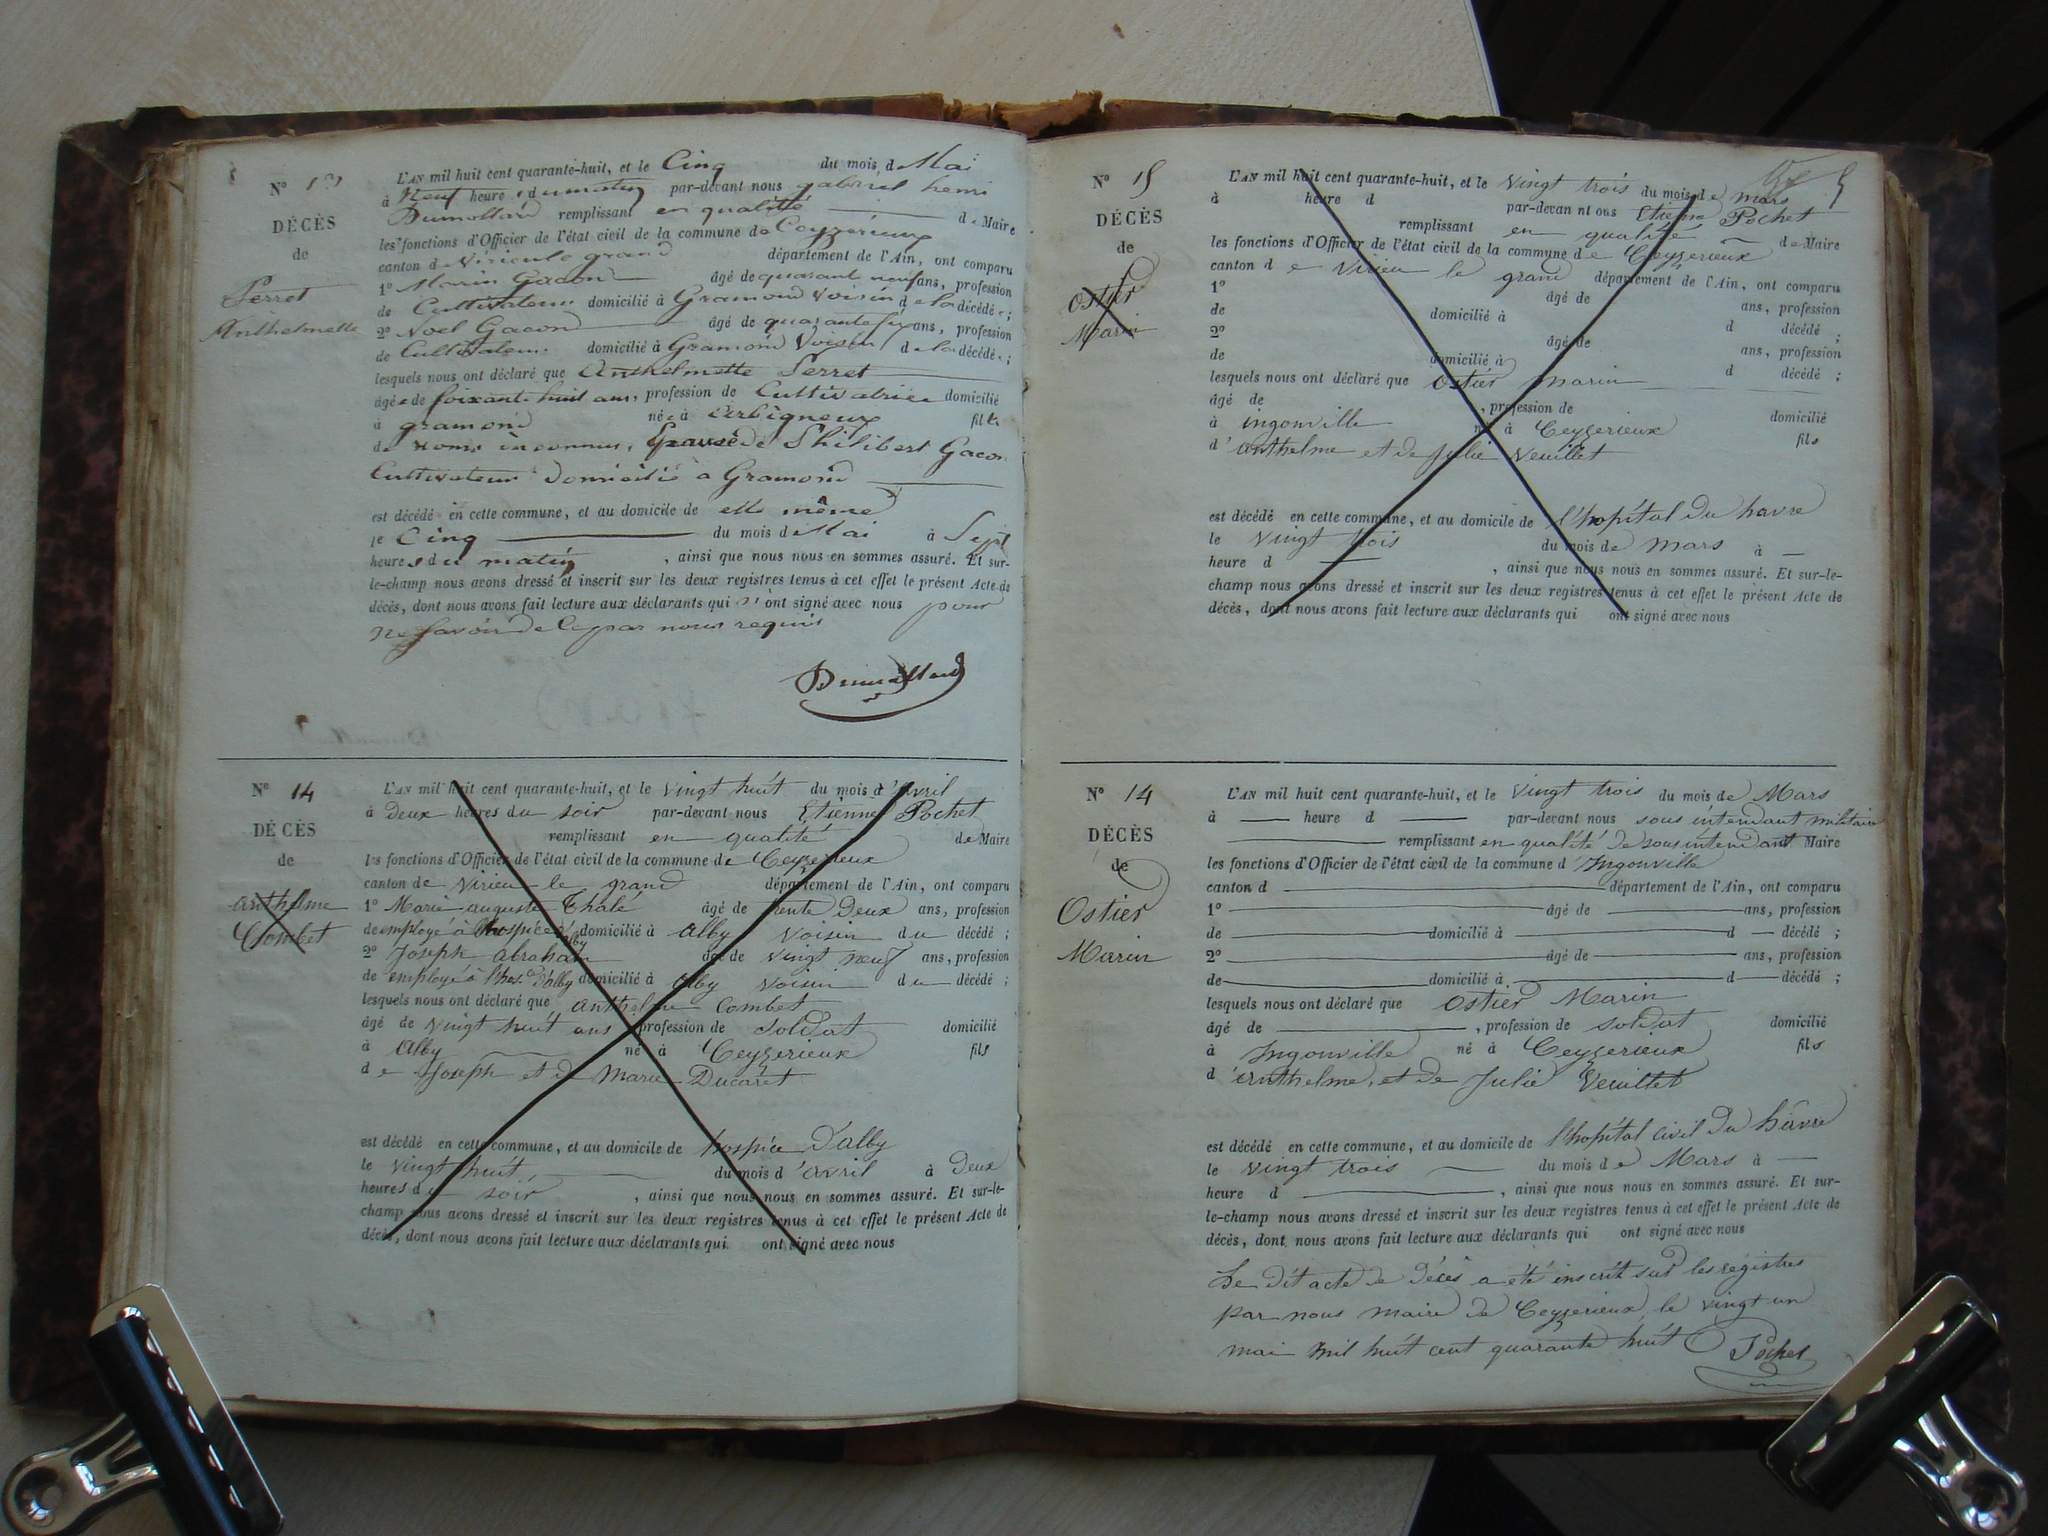 N° 13
DÉCÈS
de
Perret
Anthelmette
L'AN mil huit cent quarante-huit, et le Cinq du mois d Mai
à Neuf heure s du matin par-devant nous gabriel henri
Dumollard remplissant en qualité de Maire
les fonctions d'Officier de l'état civil de la commune de Ceyzérieux
canton de Virieu le grand département de l'Ain, ont comparu
1° Marin Gacon âgé de quarant neuf ans, profession
de Cultivateur domicilié à Gramond Voisin de la décédée ;
2° Noel Gacon âgé de quarante six ans, profession
de Cultivateur domicilié à Gramond Voisin de la décédée ;
lesquels nous ont déclaré que Anthelmette Perret
âgée de soixante huit ans, profession de Cultivatrice domicilié
à gramond née à fille
de noms inconnus, de Philibert Gacon
Cultivateur domicilié à Gramond
est décédé en cette commune, et au domicile de elle même
le Cinq du mois de Mai à Sept
heures du matin, ainsi que nous nous en sommes assuré. Et sur-
le-champ nous avons dressé et inscrit sur les deux registres tenus à cet effet le présent Acte de
décès, dont nous avons fait lecture aux déclarants qui n'ont signé avec nous pour
ne savoir de ce par nous requis
Dumollard
N° 14
DÉCÈS
de
Anthelme
Combet
L'AN mil huit cent quarante-huit, et le vingt huit du mois d'avril
à Deux heures du soir par-devant nous Etienne Pochet
remplissant en qualité de Maire
les fonctions d'Officier de l'état civil de la commune de Ceyzerieux
canton de Virieu le grand département de l'Ain, ont comparu
1° Marie auguste Thalé âgé de trente Deux ans, profession
de employé à l'hospice d'alby domicilié à alby voisin du décédé ;
2° Joseph abraham âgé de vingt neuf ans, profession
de employé à l'hos. d'alby domicilié à alby voisin du décédé ;
lesquels nous ont déclaré que anthelme Combet
âgé de vingt huit ans profession de soldat domicilié
à alby né à Ceyzerieux fils
de Joseph et de Marie Ducaret
est décédé en cette commune, et au domicile de hospice D'alby
le vingt huit du mois d'avril à Deux
heures du soir, ainsi que nous nous en sommes assuré. Et sur-le-
champ nous avons dressé et inscrit sur les deux registres tenus à cet effet le présent Acte de
décès, dont nous avons fait lecture aux déclarants qui ont signé avec nous
N° 15
DÉCÈS
de
Ostier
Marin
L'AN mil huit cent quarante-huit, et le vingt trois du mois de mars
à heure d par-devant nous Etienne Pochet
remplissant en qualité de Maire
les fonctions d'Officier de l'état civil de la commune de Ceyzerieux
canton de Virieu le grand département de l'Ain, ont comparu
1° âgé de ans, profession
de domicilié à d décédé ;
2° âgé de ans, profession
de domicilié à d décédé ;
lesquels nous ont déclaré que Ostier marin
âgé de , profession de domicilié
à ingouville né à Ceyzerieux fils
d'anthelme et de Julie Veuillet
est décédé en cette commune, et au domicile de l'hopital du havre
le vingt trois du mois de mars à
heure d , ainsi que nous nous en sommes assuré. Et sur-le-
champ nous avons dressé et inscrit sur les deux registres tenus à cet effet le présent Acte de
décès, dont nous avons fait lecture aux déclarants qui ont signé avec nous
N° 14
DÉCÈS
de
Ostier
Marin
L'AN mil huit cent quarante-huit, et le vingt trois du mois de Mars
à heure d par-devant nous sous intendant militaire
remplissant en qualité de sous intendant Maire
les fonctions d'Officier de l'état civil de la commune d'Ingouville
canton d département de l'Ain, ont comparu
1° âgé de ans, profession
de domicilié à d décédé ;
2° âgé de ans, profession
de domicilié à d décédé ;
lesquels nous ont déclaré que Ostier Marin
âgé de , profession de soldat domicilié
à Ingouville né à Ceyzerieux fils
d'anthelme, et de Julie Veuillet
est décédé en cette commune, et au domicile de l'hopital civil du hâvre
le vingt trois du mois de Mars à
heure d , ainsi que nous nous en sommes assuré. Et sur-
le-champ nous avons dressé et inscrit sur les deux registres tenus à cet effet le présent Acte de
décès, dont nous avons fait lecture aux déclarants qui ont signé avec nous
Le dit acte de décès a été inscrit sur les registres
par nous maire de Ceyzerieux, le vingt un
mai mil huit cent quarante huit Pochet